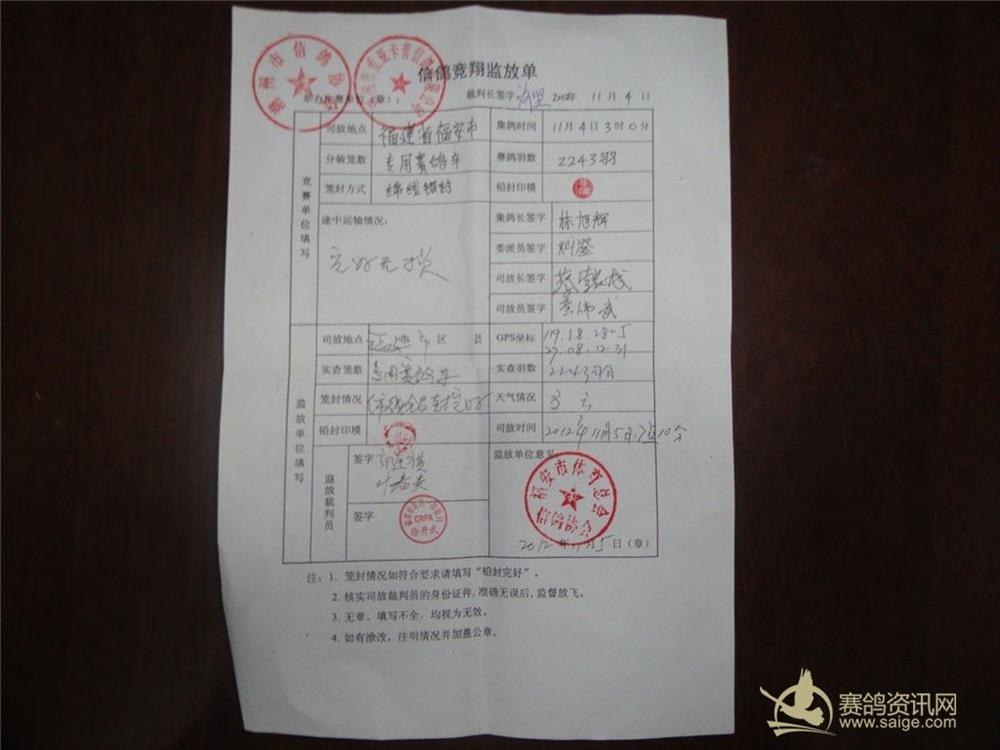 信鸽竞翔监放单
市信鸽协会
裁判长签字 2012年 11月4日
竞赛单位填写
司放地点 福建省福安市 集鸽时间 11月4日3时0分
分装笼数 专用赛鸽车 赛鸽羽数 2243羽
笼封方式 绵线铅封 铅封印模
途中运输情况： 完好无损
集鸽长签字 林旭辉
委派员签字
司放长签字
司放员签字
监放单位填写
司放地点 市 区 县 GPS坐标 119.38.28-5
27.08.12-31
实查笼数 专用赛鸽车 实查羽数 2243羽
笼封情况 天气情况 多云
铅封印模 司放时间 2012年11月5日7点10分
监放裁判员
签字
签字
CRPA
徐开武
监放单位意见
福安市体育总会
信鸽协会
2012年11月5日（章）
注：1. 笼封情况如符合要求请填写“铅封完好”。
2. 核实司放裁判员的身份证件，准确无误后，监督放飞。
3. 无章、填写不全、均视为无效。
4. 如有涂改，注明情况并加盖公章。
赛鸽资讯网
www.saige.com